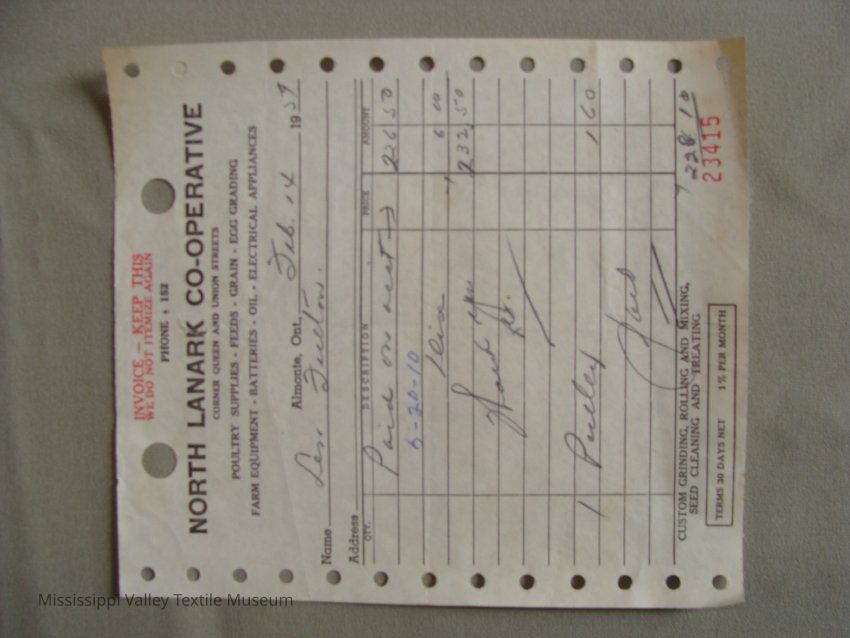 INVOICE - KEEP THIS
WE DO NOT ITEMIZE AGAIN
PHONE : 152
NORTH LANARK CO-OPERATIVE
CORNER QUEEN AND UNION STREETS
POULTRY SUPPLIES - FEEDS - GRAIN - EGG GRADING
FARM EQUIPMENT - BATTERIES - OIL - ELECTRICAL APPLIANCES
Almonte, Ont., Feb. 14 1959
Name Les. Fulton.
Address
QTY. DESCRIPTION PRICE AMOUNT
Paid on acct 226 50
5-20-10
6 00
232 50
Thank you
1 Pulley 1 60
Paid
228 10
CUSTOM GRINDING, ROLLING AND MIXING,
SEED CLEANING AND TREATING
23415
TERMS 30 DAYS NET 1% PER MONTH
Mississippi Valley Textile Museum